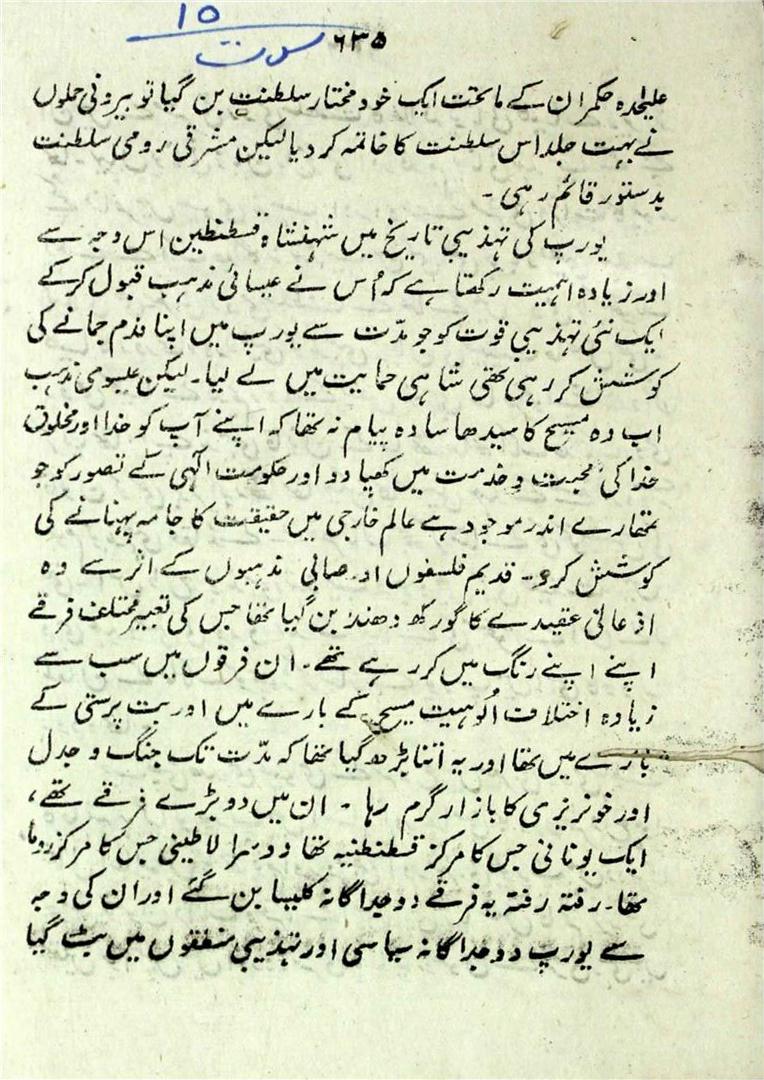 10
۶۳۵
علیحدہ حکمران کے ماتحت ایک خود مختار سلطنت بن گیا تو بیرونی حملوں
نے بہت جلد اس سلطنت کا خاتمہ کر دیا لیکن مشرقی رومی سلطنت
بدستور قائم رہی ۔
یورپ کی تہذیبی تاریخ میں شہنشاہ قسطنطین اس وجہ سے
اور زیادہ اہمیت رکھتا ہے کہ اُس نے عیسائی مذہب قبول کرکے
ایک نئی تہذیبی قوت کو جو مدّت سے یورپ میں اپنا قدم جمانے کی
کوشش کر رہی تھی شاہی حمایت میں لے لیا۔ لیکن عیسوی مذہب
اب وہ مسیح کا سیدھا سادہ پیام نہ تھا کہ اپنے آپ کو خدا اور مخلوق
خدا کی محبت و خدمت میں کھپا دو اور حکومت الٰہی کے تصور کو جو
تمھارے اندر موجود ہے عالم خارجی میں حقیقت کا جامہ پہنانے کی
کوشش کرو۔ قدیم فلسفوں اور صابی مذہبوں کے اثر سے وہ
اذعانی عقیدے کا گورکھ دھندا بن گیا تھا جس کی تعبیر مختلف فرقے
اپنے اپنے رنگ میں کر رہے تھے۔ ان فرقوں میں سب سے
زیادہ اختلاف اُلوہیت مسیح کے بارے میں اور بت پرستی کے
بارے میں تھا اور یہ اتنا بڑھ گیا تھا کہ مدّت تک جنگ و جدل
اور خونریزی کا بازار گرم رہا ۔ ان میں دو بڑے فرقے تھے،
ایک یونانی جس کا مرکز قسطنطنیہ تھا دوسرا لاطینی جس کا مرکز روما
تھا۔ رفتہ رفتہ یہ فرقے دو جداگانہ کلیسا بن گئے اور ان کی وجہ
سے یورپ دو جداگانہ سیاسی اور تہذیبی منطقوں میں بٹ گیا